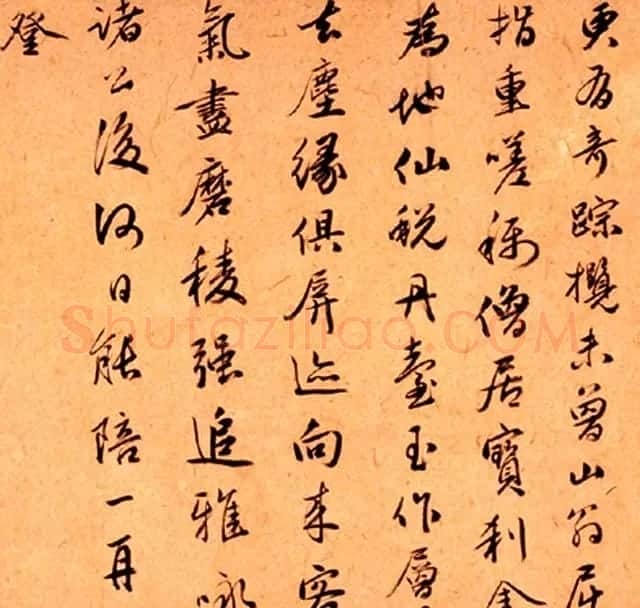 更有奇踪攬未曾山翁屈
指重嗟稱僧居寶刹金
為地仙蛻丹臺玉作層
去塵緣俱屏迹向来客
氣盡磨稜强追雅詠
諸公後何日能陪一再
登
Shufaziliao.COM